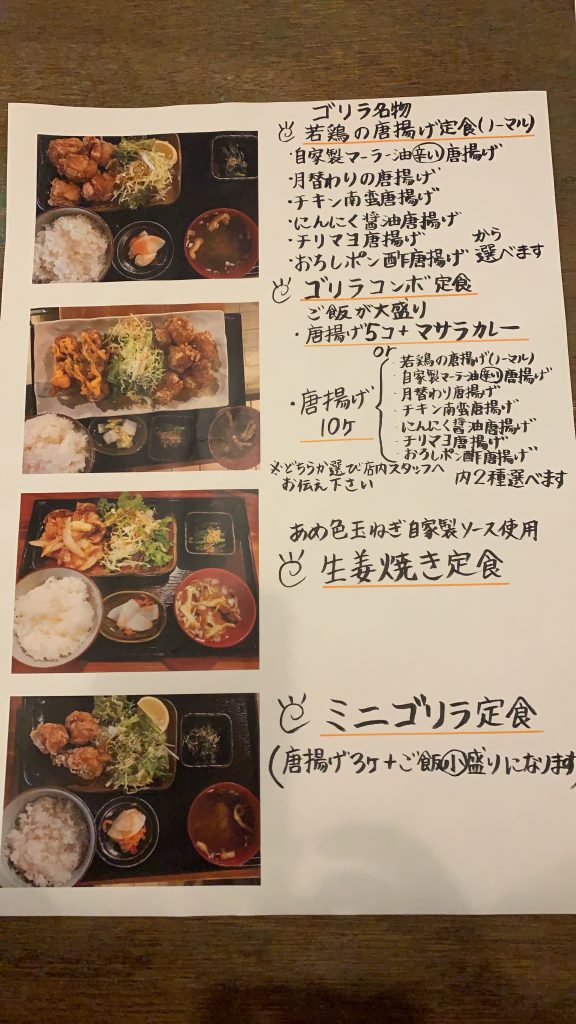 ゴリラ名物
若鶏の唐揚げ定食(ノーマル)
・自家製マーラー油辛い唐揚げ
・月替わりの唐揚げ
・チキン南蛮唐揚げ
・にんにく醤油唐揚げ
・チリマヨ唐揚げ
・おろしポン酢唐揚げ
から
選べます
ゴリラコンボ定食
ご飯が大盛り
・唐揚げ5コ+マサラカレー
or
・唐揚げ
10ヶ
・若鶏の唐揚げ(ノーマル)
・自家製マーラー油辛い唐揚げ
・月替わり唐揚げ
・チキン南蛮唐揚げ
・にんにく醤油唐揚げ
・チリマヨ唐揚げ
・おろしポン酢唐揚げ
内2種選べます
※どちらか選び店内スタッフへ
お伝え下さい
あめ色玉ねぎ自家製ソース使用
生姜焼き定食
ミニゴリラ定食
(唐揚げ3ヶ+ご飯小盛りになります